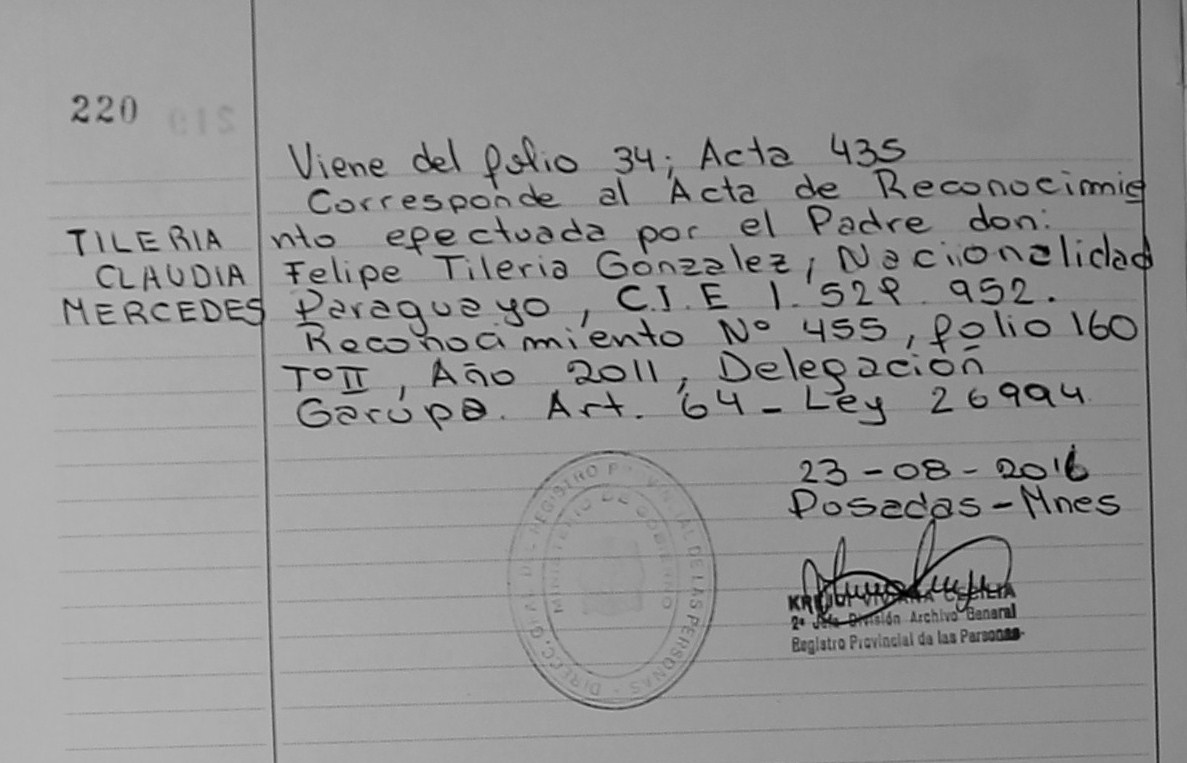 220
Viene del folio 34; Acta 435
Corresponde al Acta de Reconocimie
nto efectuada por el Padre don:
TILERIA
CLAUDIA
MERCEDES
Felipe Tileria Gonzalez, Nacionalidad
Paraguayo, C.I.E 1.529.952.
Reconocimiento Nº 455, folio 160
TºII, Año 2011, Delegación
Garupa. Art. 64 - Ley 26994
23-08-2016
Posadas - Mnes
2º Jefe División Archivo General
Registro Provincial de las Personas
DIRECC. GRAL. DEL REGISTRO PROVINCIAL DE LAS PERSONAS
MINISTERIO DE GOBIERNO